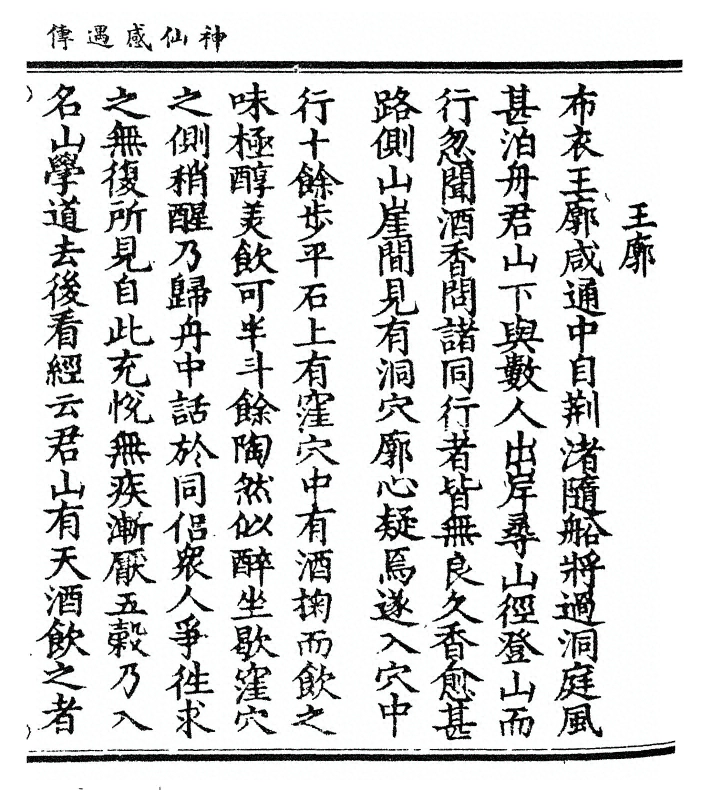 神仙感遇傳
王廓
布衣王廓咸通中自荆渚隨船將過洞庭風
甚泊舟君山下與數人出岸尋山徑登山而
行忽聞酒香問諸同行者皆無良久香愈甚
路側山崖間見有洞穴廓心疑焉遂入穴中
行十餘步平石上有窪穴中有酒掬而飲之
味極醇美飲可半斗餘陶然似醉坐歇窪穴
之側稍醒乃歸舟中話於同侶衆人爭往求
之無復所見自此充悅無疾漸厭五穀乃入
名山學道去後看經云君山有天酒飲之者